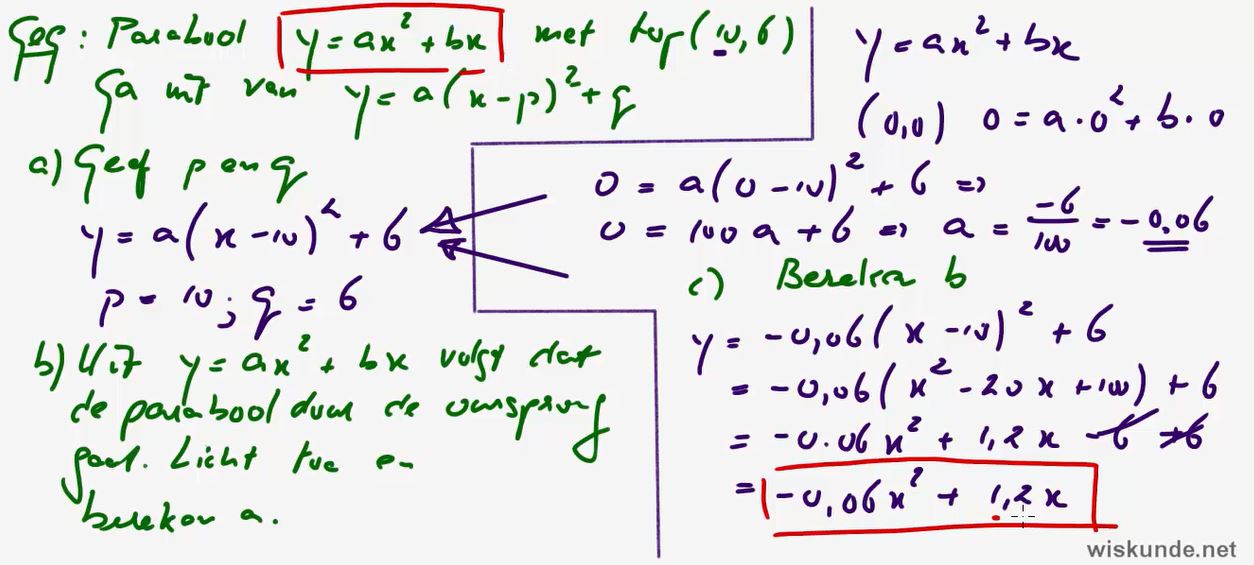 Geg: Parabool y = ax² + bx met top (10,6)
Ga uit van y = a(x-p)² + q
a) Geef p en q
y = a(x-10)² + 6
p = 10; q = 6
b) Uit y = ax² + bx volgt dat
de parabool door de oorsprong
gaat. Licht toe en
bereken a.
y = ax² + bx
(0,0) 0 = a·0² + b·0
0 = a(0-10)² + 6 =>
0 = 100a + 6 => a = -6/100 = -0,06
c) Bereken b
y = -0,06(x-10)² + 6
= -0,06(x² - 20x + 100) + 6
= -0.06x² + 1,2x -6 +6
= -0,06x² + 1,2x
wiskunde.net